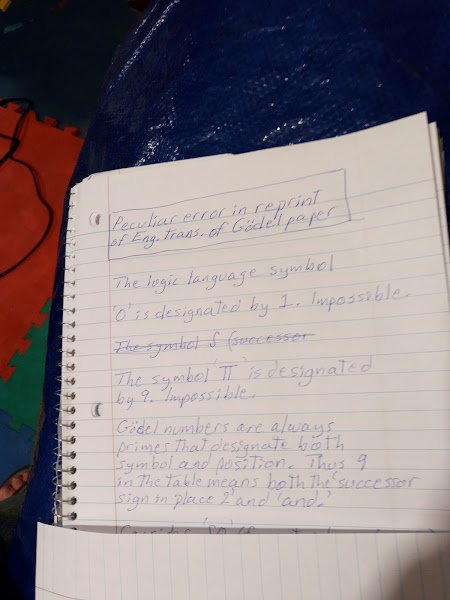 Peculiar error in reprint
of Eng. trans. of Gödel paper
The logic language symbol
'0' is designated by 1. Impossible.
The symbol S (successor
The symbol 'Π' is designated
by 9. Impossible.
Gödel numbers are always
primes that designate both
symbol and position. Thus 9
in the table means both 'the successor
sign in place 2' and 'and.'